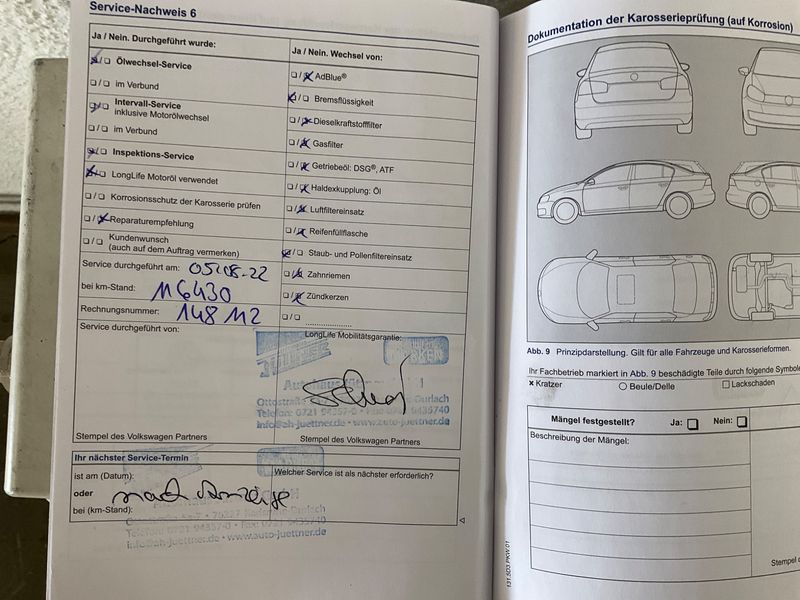 Service-Nachweis 6
Ja / Nein. Durchgeführt wurde:
Ölwechsel-Service
im Verbund
Intervall-Service
inklusive Motorölwechsel
im Verbund
Inspektions-Service
LongLife Motoröl verwendet
Korrosionsschutz der Karosserie prüfen
Reparaturempfehlung
Kundenwunsch
(auch auf dem Auftrag vermerken)
Service durchgeführt am: 05.08.22
bei km-Stand: 116430
Rechnungsnummer: 148 112
Service durchgeführt von:
Stempel des Volkswagen Partners
Ja / Nein. Wechsel von:
AdBlue®
Bremsflüssigkeit
Dieselkraftstofffilter
Gasfilter
Getriebeöl: DSG®, ATF
Haldexkupplung: Öl
Luftfiltereinsatz
Reifenfüllflasche
Staub- und Pollenfiltereinsatz
Zahnriemen
Zündkerzen
LongLife Mobilitätsgarantie:
info@ah-juettner.de • www.auto-juettner.de
Stempel des Volkswagen Partners
Ihr nächster Service-Termin
ist am (Datum):
oder nach Anzeige
bei (km-Stand):
Welcher Service ist als nächster erforderlich?
info@ah-juettner.de • www.auto-juettner.de
Dokumentation der Karosserieprüfung (auf Korrosion)
Abb. 9 Prinzipdarstellung. Gilt für alle Fahrzeuge und Karosserieformen.
Ihr Fachbetrieb markiert in Abb. 9 beschädigte Teile durch folgende Symbole
Kratzer
Beule/Delle
Lackschaden
Mängel festgestellt? Ja: Nein:
Beschreibung der Mängel:
Stempel
131.5D3.PKW.01